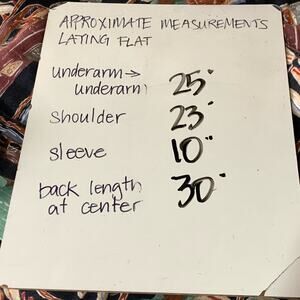 APPROXIMATE MEASUREMENTS
LAYING FLAT
underarm → 
underarm 25"
shoulder 23"
sleeve 10"
back length
at center 30"